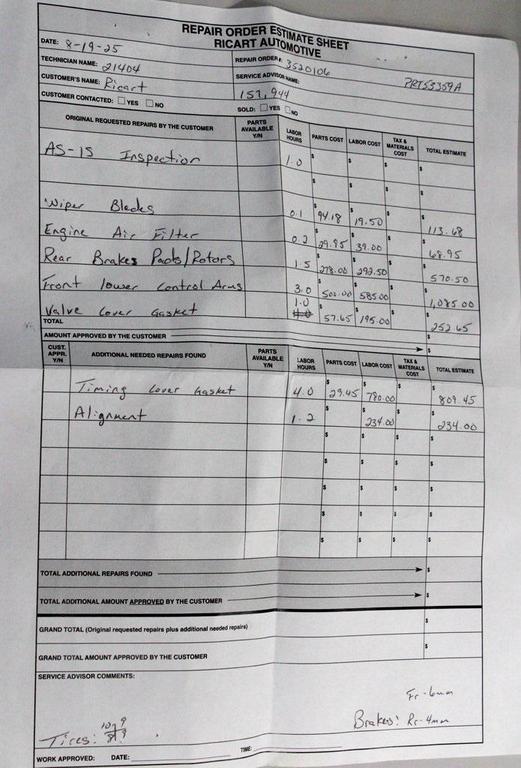 REPAIR ORDER ESTIMATE SHEET
RICART AUTOMOTIVE
DATE: 8-19-25 REPAIR ORDER#: 3520106
TECHNICIAN NAME: 21404 SERVICE ADVISOR NAME: PRT53359A
CUSTOMER'S NAME: Ricart 157,944
CUSTOMER CONTACTED: YES NO SOLD: YES NO
ORIGINAL REQUESTED REPAIRS BY THE CUSTOMER PARTS AVAILABLE Y/N LABOR HOURS PARTS COST LABOR COST TAX & MATERIALS COST TOTAL ESTIMATE
AS-IS Inspection 1.0 $ $ $ $
$ $ $ $
Wiper Blades 0.1 $ 94.18 $ 19.50 $ $ 113.68
Engine Air Filter 0.2 $ 29.95 $ 39.00 $ $ 68.95
Rear Brakes Pads/Rotors 1.5 $ 278.00 $ 292.50 $ $ 570.50
Front lower Control Arms 3.0 $ 500.00 $ 585.00 $ $ 1,085.00
Valve Cover Gasket 1.0 $ 57.65 $ 195.00 $ $ 252.65
TOTAL $
AMOUNT APPROVED BY THE CUSTOMER $
CUST. APPR. Y/N ADDITIONAL NEEDED REPAIRS FOUND PARTS AVAILABLE Y/N LABOR HOURS PARTS COST LABOR COST TAX & MATERIALS COST TOTAL ESTIMATE
Timing Cover Gasket 4.0 $ 29.45 $ 780.00 $ $ 809.45
Alignment 1.2 $ $ 234.00 $ $ 234.00
$ $ $ $
$ $ $ $
$ $ $ $
$ $ $ $
$ $ $ $
TOTAL ADDITIONAL REPAIRS FOUND $
TOTAL ADDITIONAL AMOUNT APPROVED BY THE CUSTOMER $
GRAND TOTAL (Original requested repairs plus additional needed repairs) $
GRAND TOTAL AMOUNT APPROVED BY THE CUSTOMER $
SERVICE ADVISOR COMMENTS:
Fr-6mm
Brakes: Rr-4mm
Tires: 10 9
8 9
WORK APPROVED: DATE: TIME: